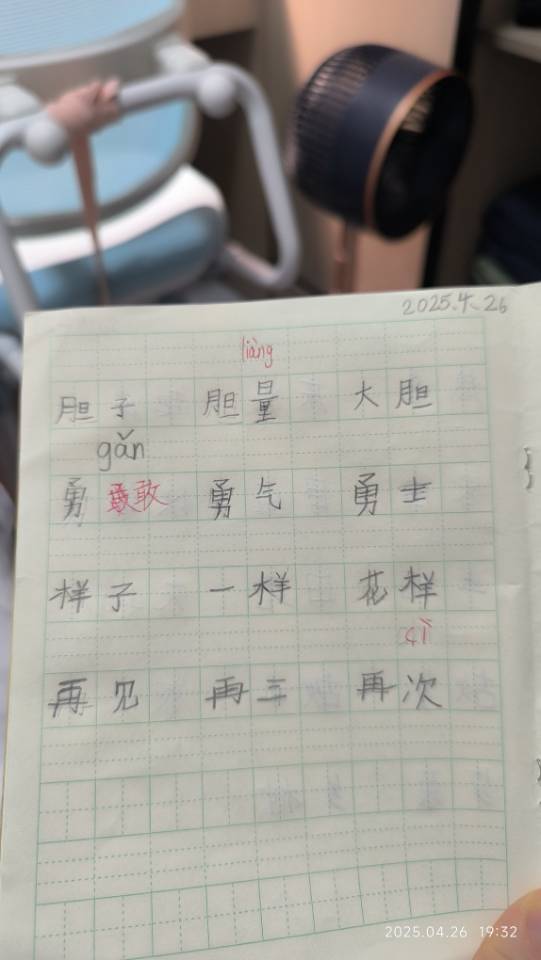 2025.4.26
liàng
胆子 胆量 大胆
gǎn
勇敢敢 勇气 勇士
样子 一样 花样
cì
再见 再三 再次
2025.04.26 19:32